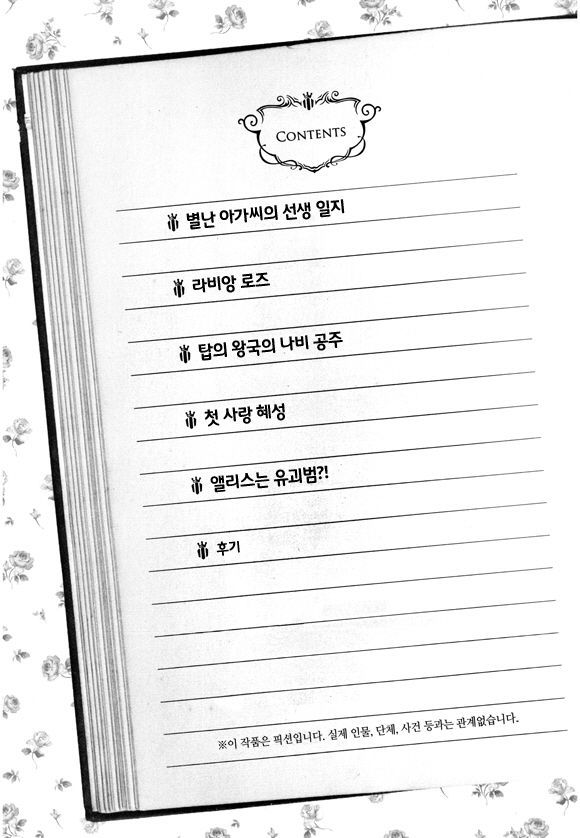 CONTENTS
별난 아가씨의 선생 일지
라비앙 로즈
탑의 왕국의 나비 공주
첫 사랑 혜성
앨리스는 유괴범?!
후기
※이 작품은 픽션입니다. 실제 인물, 단체, 사건 등과는 관계없습니다.